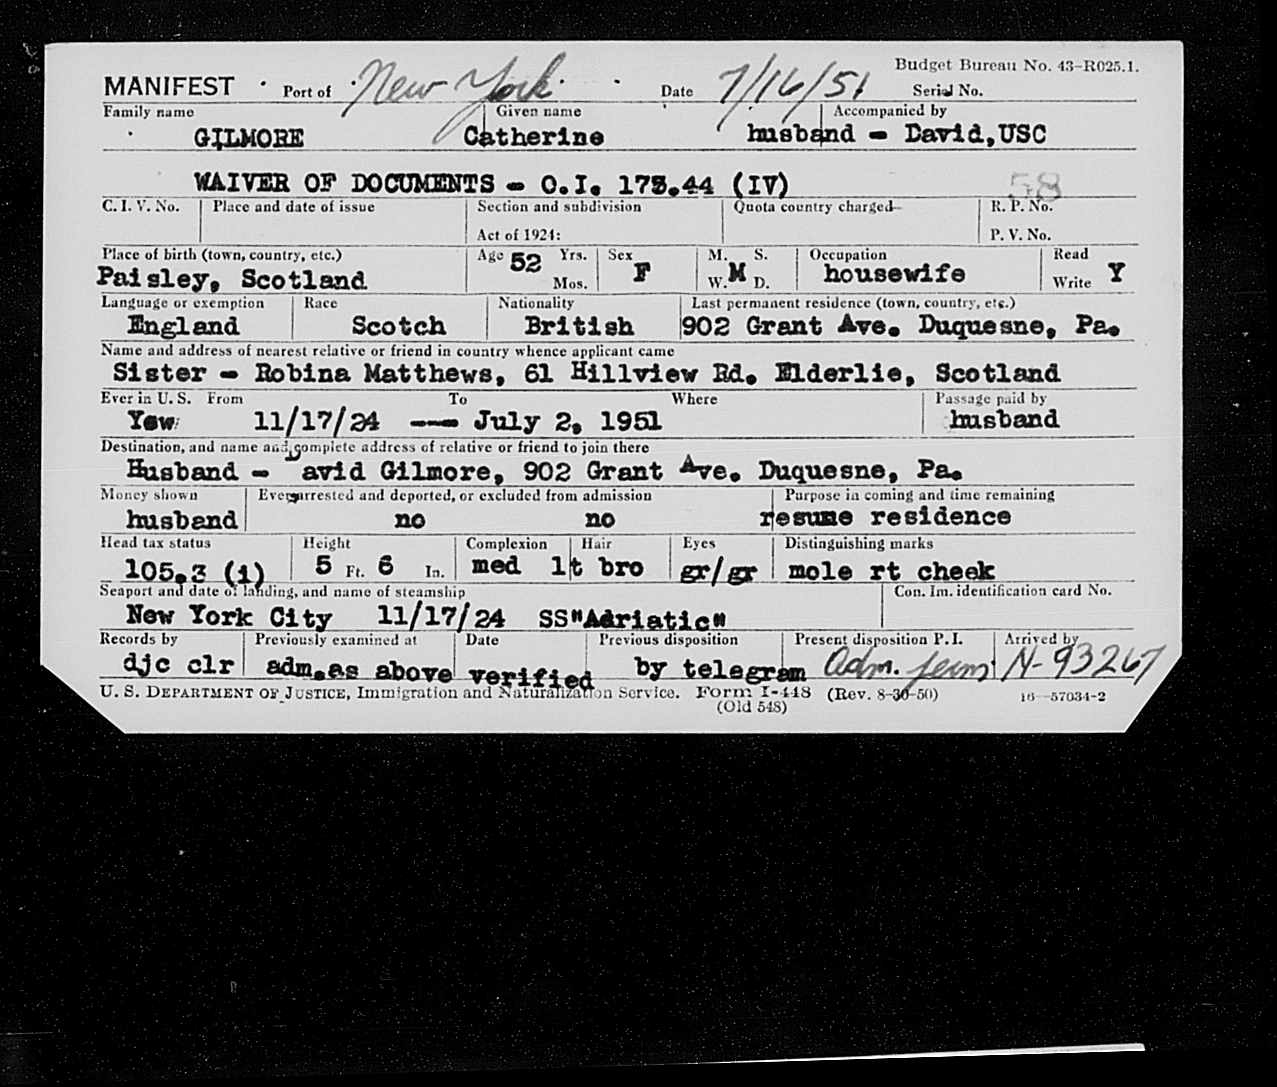 Budget Bureau No. 43-R025.1.
MANIFEST Port of New York Date 7/16/51 Serial No.
Family name Given name Accompanied by
GILMORE Catherine husband - David,USC
WAIVER OF DOCUMENTS - O.I. 173.44 (IV) 58
C. I. V. No. Place and date of issue Section and subdivision Quota country charged R. P. No.
Act of 1924: P. V. No.
Place of birth (town, country, etc.) Age 52 Yrs. Sex M. S. Occupation Read
Paisley, Scotland Mos. F W. M D. housewife Write Y
Language or exemption Race Nationality Last permanent residence (town, country, etc.)
England Scotch British 902 Grant Ave. Duquesne, Pa.
Name and address of nearest relative or friend in country whence applicant came
Sister - Robina Matthews, 61 Hillview Rd. Elderlie, Scotland
Ever in U. S. From To Where Passage paid by
Yew 11/17/24 --- July 2, 1951 husband
Destination, and name and complete address of relative or friend to join there
Husband - David Gilmore, 902 Grant Ave. Duquesne, Pa.
Money shown Ever arrested and deported, or excluded from admission Purpose in coming and time remaining
husband no no resume residence
Head tax status Height Complexion Hair Eyes Distinguishing marks
105.3 (i) 5 Ft. 6 In. med lt bro gr/gr mole rt cheek
Seaport and date of landing, and name of steamship Con. Im. identification card No.
New York City 11/17/24 SS"Adriatic"
Records by Previously examined at Date Previous disposition Present disposition P. I. Arrived by
djc clr adm.as above verified by telegram Adm. N-93267
U. S. DEPARTMENT OF JUSTICE, Immigration and Naturalization Service. Form I-448 (Rev. 8-30-50) 16-57034-2
(Old 548)